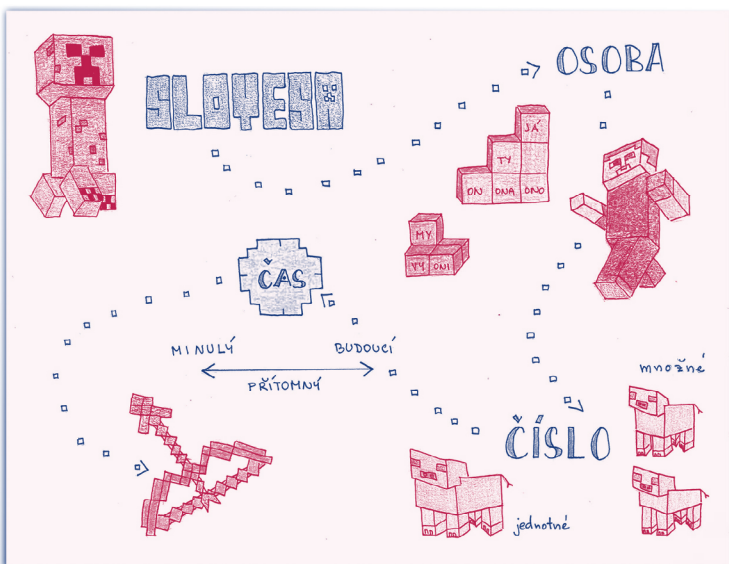 SLOVESA
OSOBA
JÁ
TY
ON ONA ONO
MY
VY ONI
ČAS
MINULÝ
BUDOUCÍ
PŘÍTOMNÝ
množné
ČÍSLO
jednotné